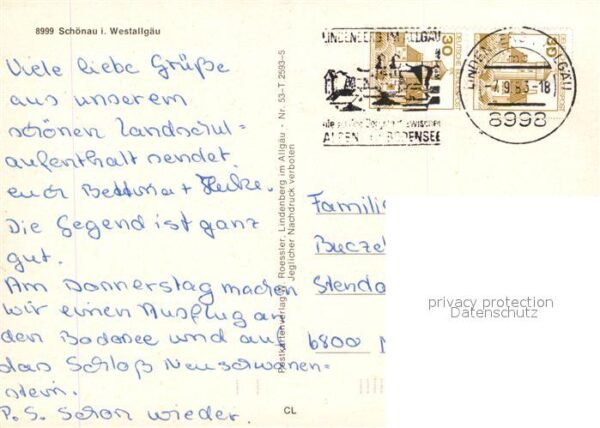 8999 Schönau i. Westallgäu
Viele liebe Grüße
aus unserem
schönen Landschul=
aufenthalt sendet
euch Bettina + Heike.
Die Gegend ist ganz
gut.
Am Donnerstag machen
wir einen Ausflug an
den Bodensee und auf
das Schloß Neuschwan-
stein.
P.S. Schon wieder.
CL
Postkartenverlag W. Roessler, Lindenberg im Allgäu · Nr. 53-T 2593-S
Jeglicher Nachdruck verboten
LINDENBERG IM ALLGÄU
zwischen
ALPEN BODENSEE
30
30
LINDENBERG ALLGÄU
9.83-18
8998
Familie
Buczel
Stenda
6800
privacy protection
Datenschutz